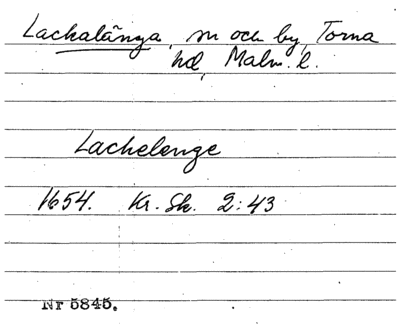 Lackalänga, sn och by, Torna
hd, Malm. l.
Lachelenge
1654. Kr. Sk. 2:43
Nr 5845.